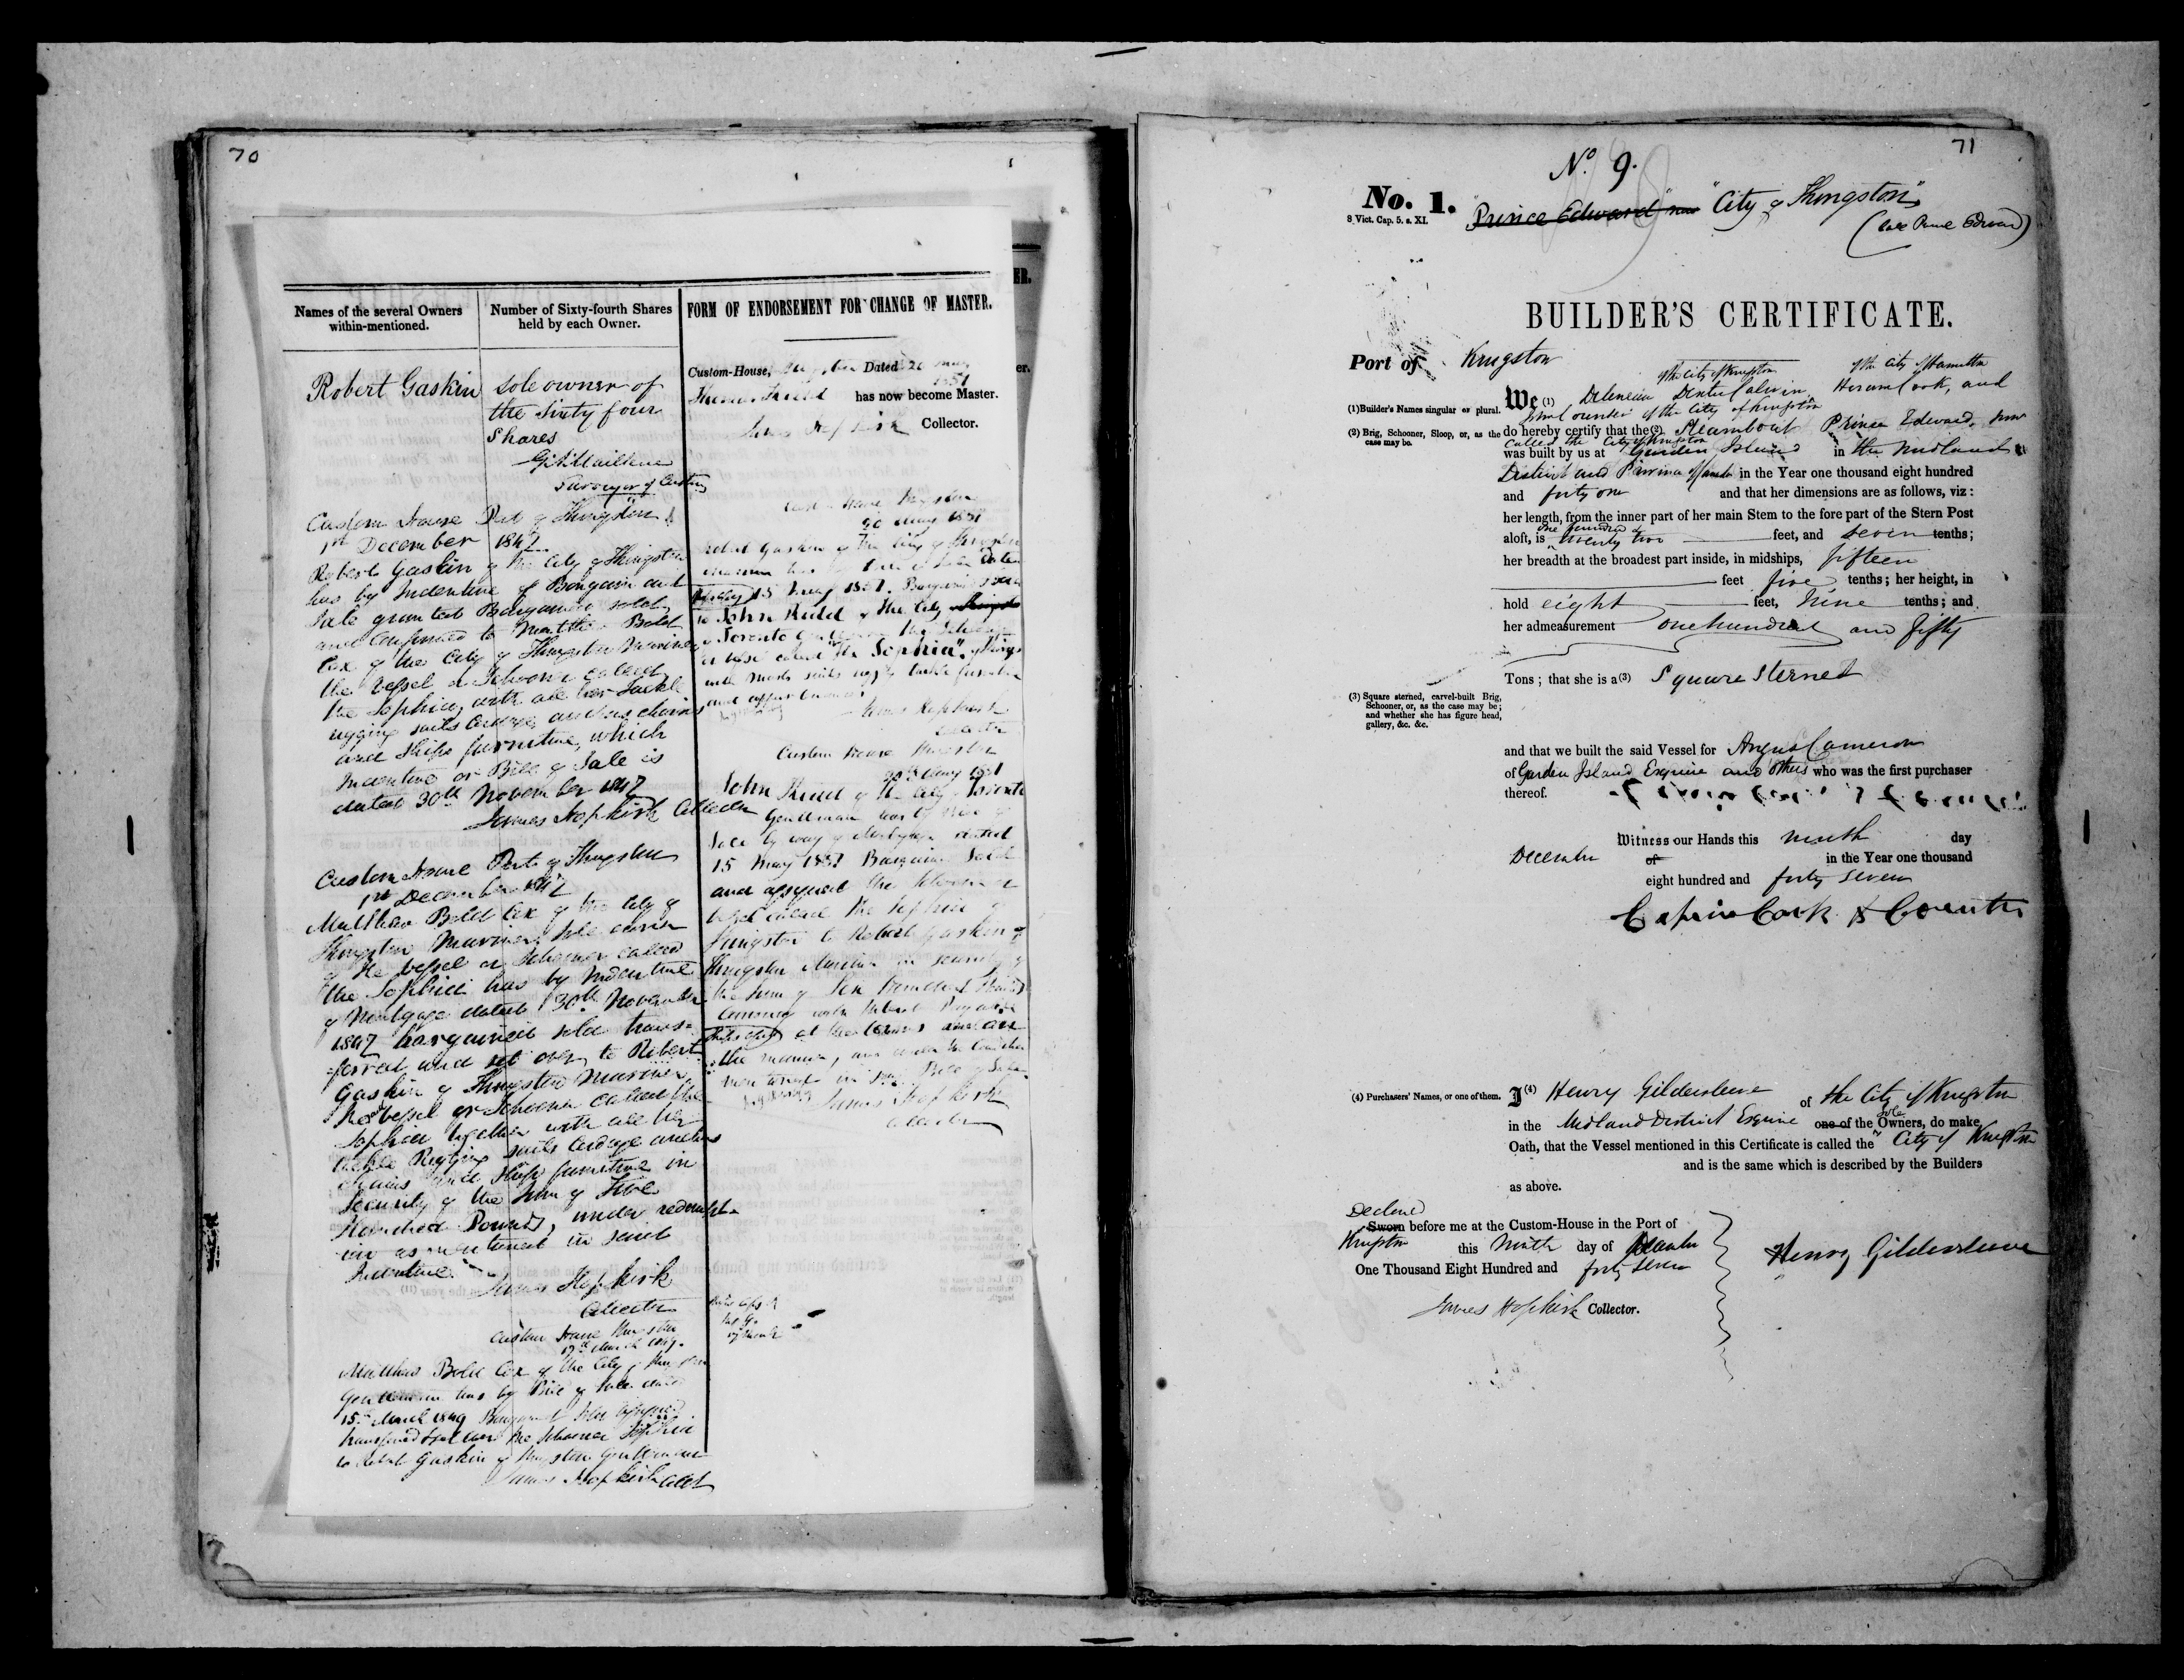 70
Names of the several Owners
within-mentioned.
Number of Sixty-fourth Shares
held by each Owner.
FORM OF ENDORSEMENT FOR CHANGE OF MASTER.
Robert Gaskin
Sole owner of
the Sixty four
Shares
Surveyor of Customs
Custom House Port of Kingston
1st December 1847
Robert Gaskin of the City of Kingston
has by Indenture of Bargain and
Sale granted Bargained sold
and confirmed to Matthew Bold
Cox of the City of Kingston Mariner
the Vessel or Schooner called
the Sophia, with all her Tackle
rigging sails cordage anchors chains
and Ships furniture, which
Indenture or Bill of Sale is
dated 30th November 1847
James Hopkirk Collector
Custom House Port of Kingston
1st December 1847
Matthew Bold Cox of the City of
Kingston Mariner, Sole owner
of the Vessel or Schooner called
the Sophia has by Indenture
of Mortgage dated 30th November
1847 bargained sold trans-
ferred and set over, to Robert
Gaskin of Kingston Mariner,
the Vessel or Schooner called the
Sophia together with all her
tackle Rigging sails Cordage anchors
chains and Ships furniture in
Security of the Sum of Five
Hundred Pounds, under redempt-
ion as mentioned in said
Indenture.
James Hopkirk
Collector
Custom House Kingston
17th March 1849.
Matthew Bold Cox of the City of Kingston
Gentleman has by Bill of Sale dated
15th March 1849 Bargained Sold assigned
transferred & set over the Schooner Sophia
to Robert Gaskin of Kingston Gentleman
James Hopkirk Collr
Custom-House, Kingston Dated 20 May
1851
has now become Master.
James Hopkirk Collector.
Custom House Kingston
20 May 1851
Robert Gaskin of the City of Kingston
15 May 1851. Bargained Sold
to John Rudd of the City
of Toronto Gentleman the Schooner
or Vessel called "the Sophia" of Kingston
with masts sails rigging tackle furniture
and appurtenances
James Hopkirk
Collector
Custom House Kingston
20th May 1851
John Rudd of the City of Toronto
Gentleman has by Bill of
Sale by way of Mortgage dated
15 May 1851 Bargained Sold
and assigned the Schooner or
Vessel called the Sophia of
Kingston to Robert Gaskin of
Kingston Mariner in security of
the Sum of Six hundred Pounds
Currency with Interest
at the terms and
the manner, and under the Conditions
mentioned in said Bill of Sale
James Hopkirk
Collector
71
No. 9.
No. 1.
8 Vict. Cap. 5. s. XI.
Prince Edward now "City of Kingston"
(late Prince Edward)
BUILDER'S CERTIFICATE.
Port of Kingston
of the City of Kingston
of the City of Hamilton
(1) Builder's Names singular or plural.
We (1) Delencia Dexter Calvin, Hiram Cook, and
John Counter of the City of Kingston
(2) Brig, Schooner, Sloop, or, as the
case may be.
do hereby certify that the (2) Steamboat Prince Edward, now
called the City of Kingston
was built by us at Garden Island in the Midland
District and Province of Canada in the Year one thousand eight hundred
and forty one and that her dimensions are as follows, viz:
her length, from the inner part of her main Stem to the fore part of the Stern Post
one hundred &
aloft, is twenty two feet, and seven tenths;
her breadth at the broadest part inside, in midships, fifteen
feet five tenths; her height, in
hold eight feet, nine tenths; and
her admeasurement one hundred and fifty
Tons; that she is a (3) Square Sterned
(3) Square sterned, carvel-built Brig,
Schooner, or, as the case may be;
and whether she has figure head,
gallery, &c. &c.
and that we built the said Vessel for Angus Cameron
of Garden Island Esquire and others who was the first purchaser
thereof.
Witness our Hands this ninth day
December of in the Year one thousand
eight hundred and forty seven
Calvin Cook & Counter
(4) Purchasers' Names, or one of them.
I (4) Henry Gildersleeve of the City of Kingston
in the Midland District Esquire one of the sole Owners, do make
Oath, that the Vessel mentioned in this Certificate is called the "City of Kingston
and is the same which is described by the Builders
as above.
Declared
Sworn before me at the Custom-House in the Port of
Kingston this Ninth day of December
One Thousand Eight Hundred and forty seven
Henry Gildersleeve
James Hopkirk Collector.